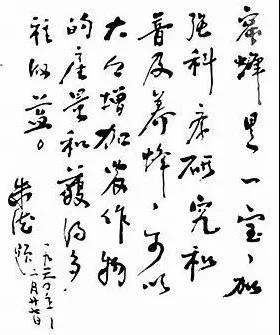 蜜蜂是一宝、加
强科学研究和
普及养蜂、可以
大大增加农作物
的產量和獲得多
种收益。
朱德题
一九六〇年
二月廿七日